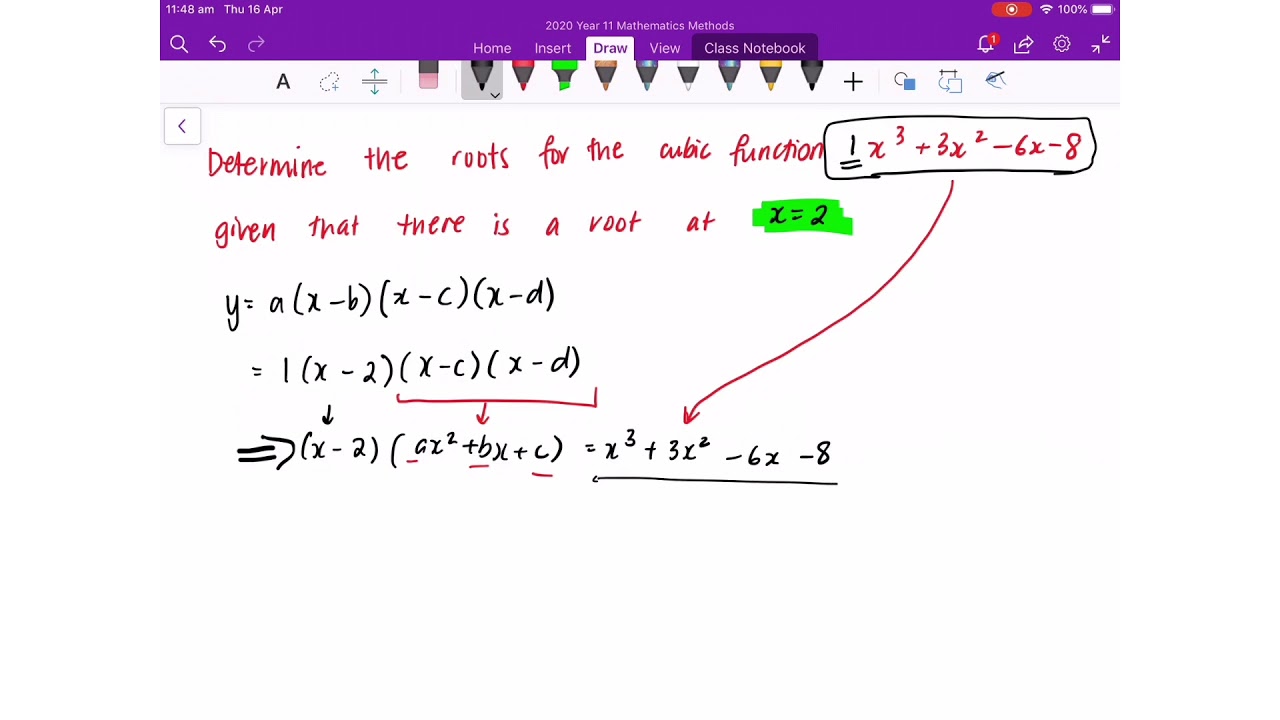 11:48 am Thu 16 Apr 100%
2020 Year 11 Mathematics Methods
Home Insert Draw View Class Notebook
1
A
Determine the roots for the cubic function 1x³ + 3x² − 6x − 8
given that there is a root at x = 2
y = a(x − b)(x − c)(x − d)
= 1(x − 2)(x − c)(x − d)
⇒ (x − 2)(ax² + bx + c) = x³ + 3x² − 6x − 8